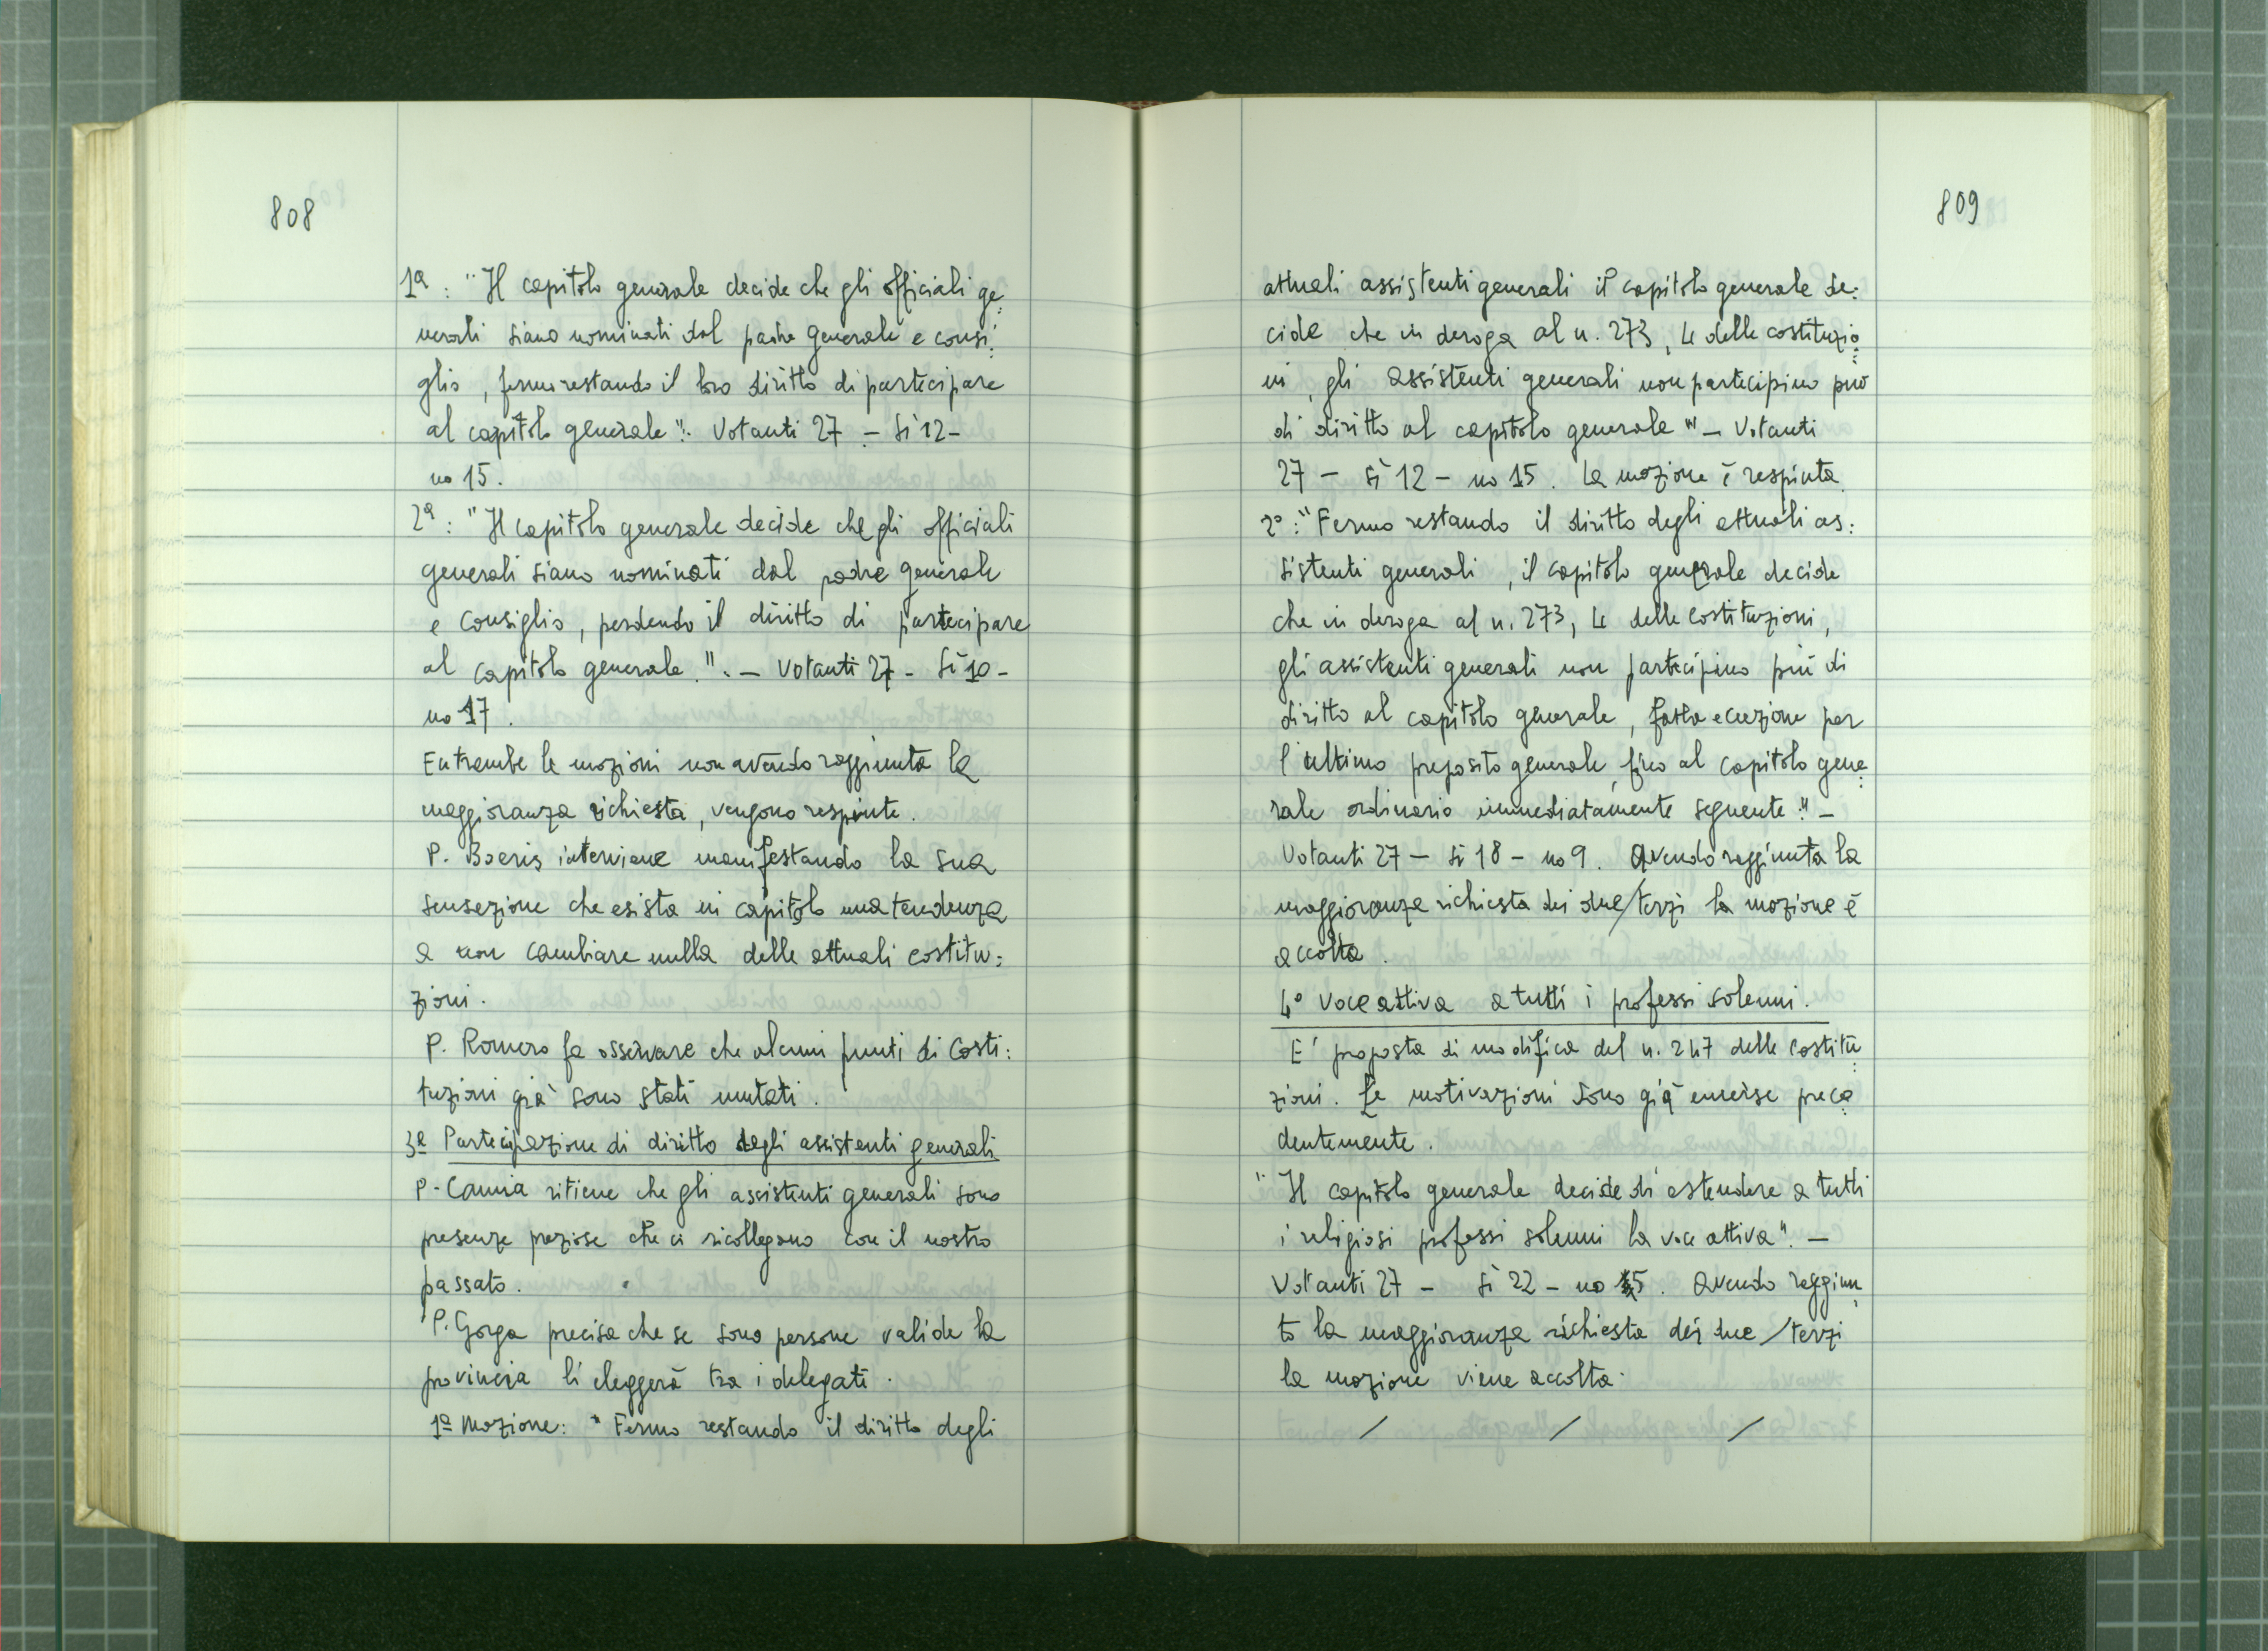 808
1ª : "Il capitolo generale decide che gli officiali ge:
nerali siano nominati dal padre generale e consi:
glio, fermo restando il loro diritto di partecipare
al capitolo generale". Votanti 27 - Sì 12 -
no 15.
2ª : "Il capitolo generale decide che gli officiali
generali siano nominati dal padre generale
e Consiglio, perdendo il diritto di partecipare
al capitolo generale.". - Votanti 27 - Sì 10 -
no 17.
Entrambe le mozioni non avendo raggiunta la
maggioranza richiesta, vengono respinte.
P. Boeris interviene manifestando la sua
sensazione che esista in capitolo una tendenza
a non cambiare nulla delle attuali costitu:
zioni.
P. Romero fa osservare che alcuni punti di Costi:
tuzioni già sono stati mutati.
3ª Partecipazione di diritto degli assistenti generali
P. Camia ritiene che gli assistenti generali sono
presenze preziose che ci ricollegano con il nostro
passato.
P. Gorga precisa che se sono persone valide la
provincia li eleggerà tra i delegati.
1ª Mozione: "Fermo restando il diritto degli
809
attuali assistenti generali il capitolo generale de:
cide che in deroga al n. 273, 4 delle costituzio:
ni, gli assistenti generali non partecipino più
di diritto al capitolo generale" - Votanti
27 - Sì 12 - no 15. La mozione è respinta.
2º : "Fermo restando il diritto degli attuali as:
sistenti generali, il capitolo generale decide
che in deroga al n. 273, 4 delle Costituzioni,
gli assistenti generali non partecipino più di
diritto al capitolo generale, fatta eccezione per
l'ultimo preposito generale, fino al capitolo gene:
rale ordinario immediatamente seguente". -
Votanti 27 - Sì 18 - no 9. Avendo raggiunta la
maggioranza richiesta dei due/terzi la mozione è
accolta.
4º Voce attiva a tutti i professi solenni.
E' proposta di modifica del n. 247 delle Costitu:
zioni. Le motivazioni sono già emerse prece:
dentemente.
"Il capitolo generale decide di estendere a tutti
i religiosi professi solenni la voce attiva". -
Votanti 27 - Sì 22 - no 5. Avendo raggiun:
to la maggioranza richiesta dei due/terzi
la mozione viene accolta.
/ / /